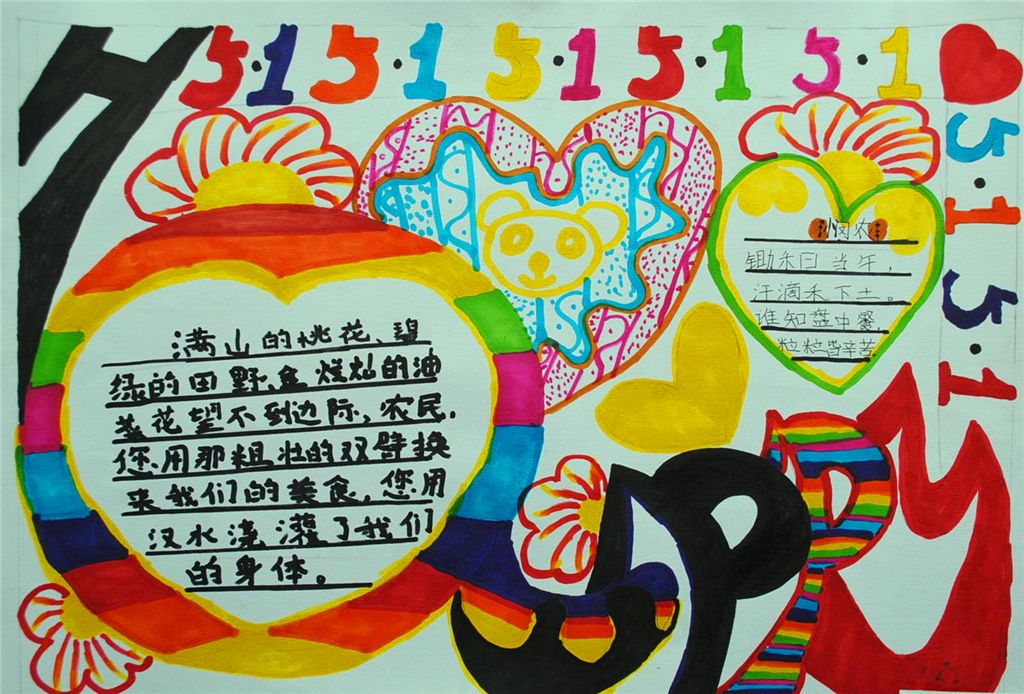 5·1 5·1 5·1 5·1 5·1
5·1 5·1
满山的桃花、碧
绿的田野、金灿的油
菜花望不到边际，农民，
您用那粗壮的双臂换
来我们的美食，您用
汉水浇灌了我们
的身体。
农
锄禾日当午，
汗滴禾下土。
谁知盘中餐，
粒粒皆辛苦